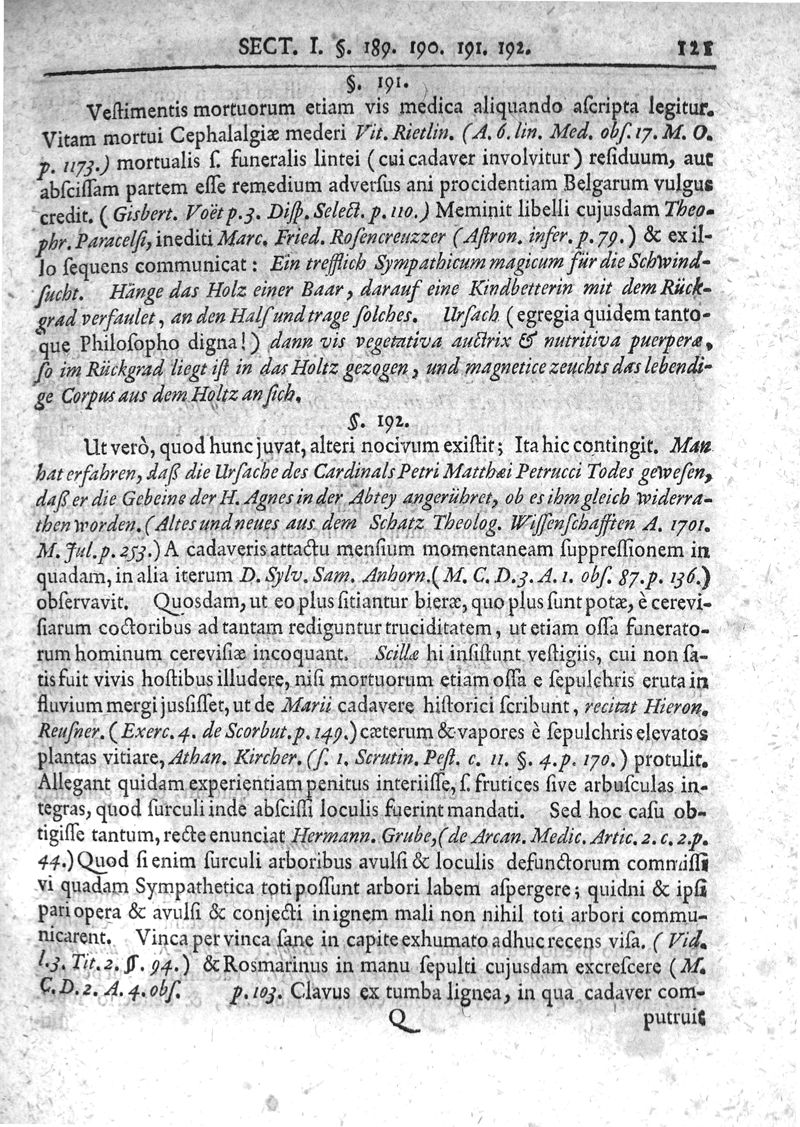 SECT. I. §. 189. 190. 191. 192. 121
§. 191.
Veſtimentis mortuorum etiam vis medica aliquando aſcripta legitur.
Vitam mortui Cephalalgiæ mederi Vit. Rietlin. (A. 6. lin. Med. obſ. 17. M. O.
p. 1173.) mortualis ſ. funeralis lintei (cui cadaver involvitur) reſiduum, aut
abſciſſam partem eſſe remedium adverſus ani procidentiam Belgarum vulgus
credit. (Gisbert. Voët p. 3. Diſp. Select. p. 110.) Meminit libelli cujusdam Theo-
phr. Paracelſi, inediti Marc. Fried. Roſencreuzzer (Aſtron. infer. p. 79.) & ex il-
lo ſequens communicat: Ein trefflich Sympathicum magicum für die Schwind-
ſucht. Hänge das Holz einer Baar, darauf eine Kindbetterin mit dem Rück-
grad verfaulet, an den Halſ und trage ſolches. Urſach (egregia quidem tanto-
que Philoſopho digna!) dann vis vegetativa auctrix & nutritiva puerperæ,
ſo im Rückgrad liegt iſt in das Holtz gezogen, und magnetice zeuchts das lebendi-
ge Corpus aus dem Holtz an ſich.
§. 192.
Ut verò, quod hunc juvat, alteri nocivum exiſtit; Ita hic contingit. Man
hat erfahren, daß die Urſache des Cardinals Petri Matthæi Petrucci Todes geweſen,
daß er die Gebeine der H. Agnes in der Abtey angerühret, ob es ihm gleich widerra-
then worden. (Altes und neues aus dem Schatz Theolog. Wiſſenſchafften A. 1701.
M. Jul. p. 253.) A cadaveris attactu menſium momentaneam ſuppreſſionem in
quadam, in alia iterum D. Sylv. Sam. Anhorn. (M. C. D. 3. A. 1. obſ. 87. p. 136.)
obſervavit. Quosdam, ut eo plus ſitiantur bieræ, quo plus ſunt potæ, è cerevi-
ſiarum coctoribus ad tantam rediguntur truciditatem, ut etiam oſſa funerato-
rum hominum cereviſiæ incoquant. Scillæ hi inſiſtunt veſtigiis, cui non ſa-
tis fuit vivis hoſtibus illudere, niſi mortuorum etiam oſſa e ſepulchris eruta in
fluvium mergi juſſiſſet, ut de Marii cadavere hiſtorici ſcribunt, recitat Hieron.
Reuſner. (Exerc. 4. de Scorbut. p. 149.) cæterum & vapores è ſepulchris elevatos
plantas vitiare, Athan. Kircher. (ſ. 1. Scrutin. Peſt. c. 11. §. 4. p. 170.) protulit.
Allegant quidam experientiam penitus interiiſſe, ſ. frutices ſive arbusculas in-
tegras, quod ſurculi inde abſciſſi loculis fuerint mandati. Sed hoc caſu ob-
tigiſſe tantum, recte enunciat Hermann. Grube, (de Arcan. Medic. Artic. 2. c. 2. p.
44.) Quod ſi enim ſurculi arboribus avulſi & loculis defunctorum commiſſi
vi quadam Sympathetica toti poſſunt arbori labem aſpergere; quidni & ipſi
pari opera & avulſi & conjecti in ignem mali non nihil toti arbori commu-
nicarent. Vinca per vinca ſane in capite exhumato adhuc recens viſa. (Vid.
l. 3. Tit. 2. §. 94.) & Rosmarinus in manu ſepulti cujusdam excreſcere (M.
C. D. 2. A. 4. obſ. p. 103. Clavus ex tumba lignea, in qua cadaver com-
Q putruit